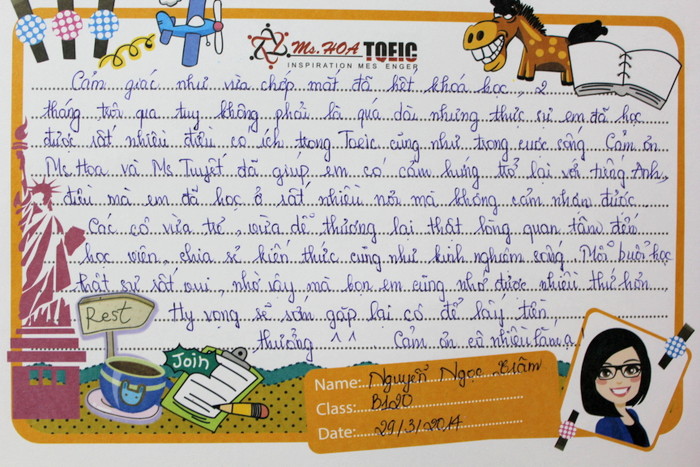 Ms.HOA TOEIC
INSPIRATION MESSENGER
Cảm giác như vừa chớp mắt đã hết khoá học, 2
tháng trôi qua tuy không phải là quá dài nhưng thực sự em đã học
được rất nhiều điều có ích trong Toeic cũng như trong cuộc sống. Cảm ơn
Ms Hoa và Ms Tuyết đã giúp em có cảm hứng trở lại với tiếng Anh,
điều mà em đã học ở rất nhiều nơi mà không cảm nhận được.
Các cô vừa trẻ, vừa dễ thương lại thật lòng quan tâm đến
học viên, chia sẻ kiến thức cũng như kinh nghiệm sống. Mỗi buổi học
thật sự rất vui, nhờ vậy mà bọn em cũng nhớ được nhiều thứ hơn.
Hy vọng sẽ sớm gặp lại cô để lấy tiền
thưởng ^^ Cảm ơn cô nhiều lắm ạ!
Rest
Join
Name: Nguyễn Ngọc Trâm
Class: B120
Date: 29/3/2014